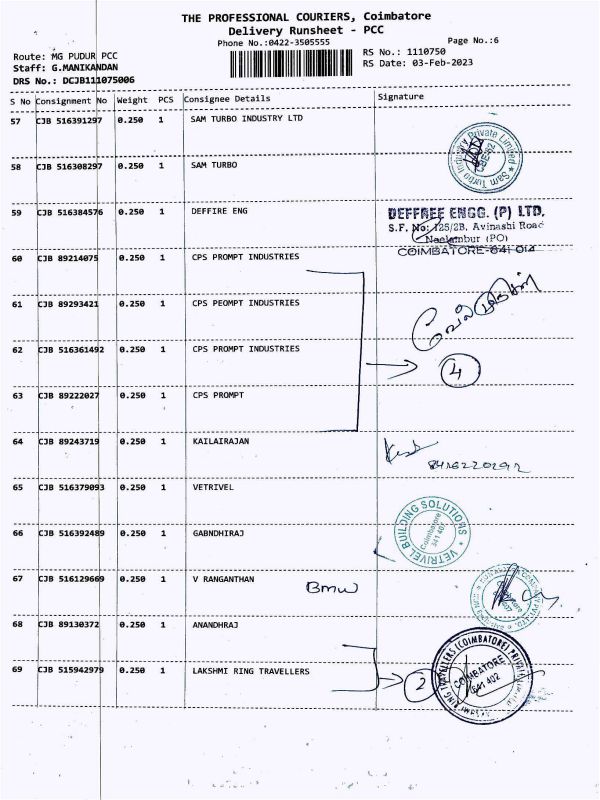 THE PROFESSIONAL COURIERS, Coimbatore
Delivery Runsheet - PCC
Phone No.:0422-3505555
Page No.:6
Route: MG PUDUR PCC
RS No.: 1110750
Staff: G.MANIKANDAN
RS Date: 03-Feb-2023
DRS No.: DCJB111075006
S No Consignment No Weight PCS Consignee Details Signature
57 CJB 516391297 0.250 1 SAM TURBO INDUSTRY LTD
Sam Turbo Industry Private Limited
58 CJB 516308297 0.250 1 SAM TURBO
59 CJB 516384576 0.250 1 DEFFIRE ENG
DEFFREE ENGG. (P) LTD.
S.F. No: 125/2B, Avinashi Road
Neelambur (PO)
COIMBATORE-641 014
60 CJB 89214075 0.250 1 CPS PROMPT INDUSTRIES
61 CJB 89293421 0.250 1 CPS PEOMPT INDUSTRIES
62 CJB 516361492 0.250 1 CPS PROMPT INDUSTRIES
4
63 CJB 89222027 0.250 1 CPS PROMPT
64 CJB 89243719 0.250 1 KAILAIRAJAN
65 CJB 516379093 0.250 1 VETRIVEL
VETRIVEL BUILDING SOLUTIONS
Coimbatore
641 402
66 CJB 516392489 0.250 1 GABNDHIRAJ
67 CJB 516129669 0.250 1 V RANGANTHAN
BMW
68 CJB 89130372 0.250 1 ANANDHRAJ
69 CJB 515942979 0.250 1 LAKSHMI RING TRAVELLERS
2
RING TRAVELLERS (COIMBATORE) PRIVATE
COIMBATORE
641 402